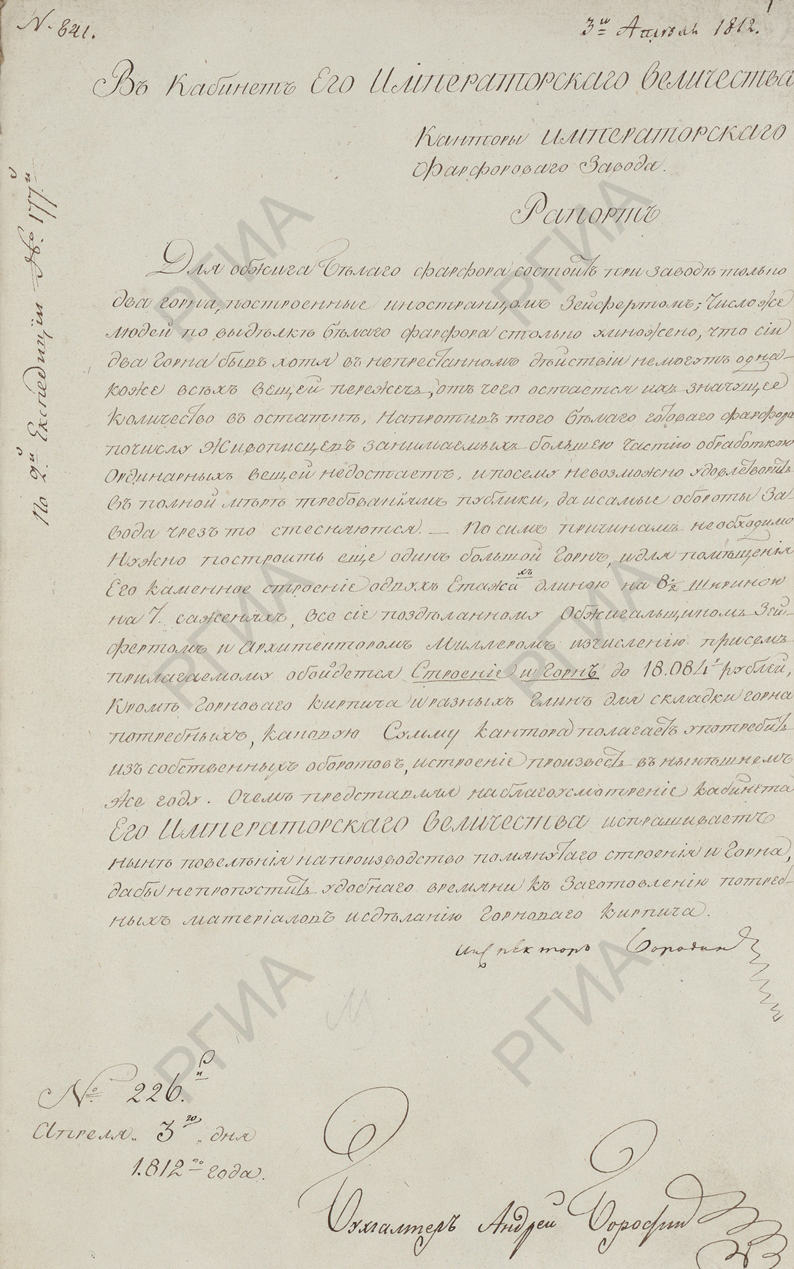 N. 641.
3го Апрѣль 1812.
Въ Кабинетъ Его Императорскаго Величества
Канторы императорскаго
Фарфороваго Завода.
Рапортъ
По 2й Експедиціи No. 177й
Для обжига бѣлаго фарфора состоитъ при заводѣ только
два горна, построенные иностранцомъ Зейфертомъ; число же
людей по выдѣлкѣ бѣлаго фарфора столько умножено, что сіи
два горна бывъ хотя въ непрестанномъ дѣйствіи не могутъ одна-
коже всѣхъ вещей пережечь, отъ чего остается ихъ значущее
количество въ остаткѣ, напротивъ того бѣлаго готоваго фарфора
по числу Живописцевъ занимаемыхъ большею частію обработкою
Ординарныхъ вещей недостаетъ, и посему невозможно удовлетворить
въ полной мѣрѣ требованіямъ публики, да и самые обороты За-
вода чрезъ то стесняются. — По симъ причинамъ необходимо
Нужно построить еще одинъ большой Горнъ, и для помѣщенія
Его каменное строеніе о двухъ Етажахъ длиною на 8½ шириною
на 7. саженяхъ, все сіе по здѣланному Обжигальщикомъ Зей-
фертомъ и Архитекторомъ Миллеромъ изчисленію присемъ
прилагаемому обойдется Строеніе и Горнъ до 18.084 рублей,
Кромѣ Горноваго кирпича и разныхъ глинъ для складки горна
потребныхъ, каковую Сумму кантора полагаетъ употребить
изъ собственныхъ оборотовъ, и строеніе произвесть въ нынѣшнемъ
же году. О чемъ представляя на благоусмотреніе кабинета
Его Императорскаго Величества испрашиваетъ
нынѣ повелѣнія на производство помянутаго строенія и Горна,
дабы непропустить удобнаго времяни къ Заготовленію потреб-
ныхъ матеріаловъ и сдѣланію Горноваго кирпича.
инспекторъ
No. 226.
Апреля 3го дня
1.812го года.
Бухгалтеръ Андрей
РГИА
РГИА
РГИА
РГИА
РГИА
РГИА